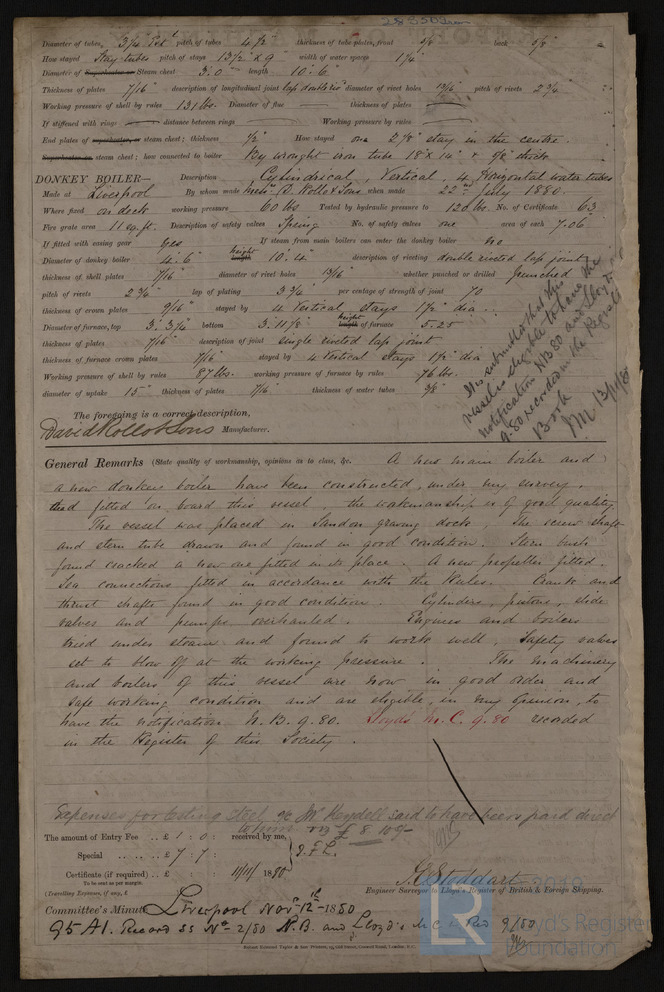 Diameter of tubes, 3¼ Extl pitch of tubes 4½ thickness of tube plates, front 5/8" back 5/8"
How stayed Stay tubes pitch of stays 13½ x 9" width of water spaces 1¼"
Diameter of Superheater or Steam chest 3.0 length 10.6"
Thickness of plates 7/16" description of longitudinal joint lap double riv diameter of rivet holes 13/16" pitch of rivets 2¾"
Working pressure of shell by rules 131 lbs. Diameter of flue thickness of plates
If stiffened with rings distance between rings Working pressure by rules
End plates of superheater, or steam chest; thickness ½" How stayed one 2⅞" stay in the centre.
Superheater or steam chest; how connected to boiler By wrought iron tube 18" x 14" x 5/8" thick
DONKEY BOILER— Description Cylindrical, Vertical, 4 Horizontal water tubes
Made at Liverpool By whom made Messrs D. Rollo & Sons when made 22nd July 1880.
Where fixed on deck working pressure 60 lbs Tested by hydraulic pressure to 120 lbs. No. of Certificate 63
Fire grate area 11 sq. ft. Description of safety valves Spring No. of safety valves one area of each 7.06"
If fitted with easing gear Yes If steam from main boilers can enter the donkey boiler no
Diameter of donkey boiler 4.6" height length 10.4" description of riveting double riveted lap joint
thickness of shell plates 7/16" diameter of rivet holes 13/16" whether punched or drilled punched
pitch of rivets 2¾" lap of plating 3¾" per centage of strength of joint 70
thickness of crown plates 9/16" stayed by 4 Vertical stays 1½" dia.
Diameter of furnace, top 3.3¾" bottom 3.11⅛" height length of furnace 5.25
thickness of plates 7/16" description of joint single riveted lap joint
thickness of furnace crown plates 7/16" stayed by 4 Vertical Stays 1½" dia
Working pressure of shell by rules 87 lbs. working pressure of furnace by rules 76 lbs.
diameter of uptake 15" thickness of plates 7/16" thickness of water tubes 3/8"
It is submitted that this
vessel is eligible to have the
notification NB 80 and Lloyds MC
9.80 recorded in the Register
Book
The foregoing is a correct description,
David Rollo & Sons Manufacturer.
General Remarks (State quality of workmanship, opinions as to class, &c. A new main boiler and
a new donkey boiler have been constructed, under my survey,
and fitted on board this vessel, the workmanship is of good quality.
The vessel was placed in Sandon graving dock, the screw shaft
and stern tube drawn and found in good condition. Stern bush
found cracked a new one fitted in its place. A new propeller fitted.
Sea connections fitted in accordance with the Rules. Crank and
thrust shafts found in good condition. Cylinders, pistons, slide
valves and pumps overhauled. Engines and boilers
tried under steam and found to work well, Safety valves
set to blow off at the working pressure. The machinery
and boilers of this vessel are now in good order and
safe working condition and are eligible, in my opinion, to
have the notification N.B. 9.80. Lloyds M.C. 9.80 recorded
in the Register of this Society.
Expenses for testing steel &c Mr Heydell said to have been paid direct
to him £8 10/-
The amount of Entry Fee .. £ 1 : 0 : received by me,
Special .. .. £ 7 : 7 :
Certificate (if required) .. £ : : 11/11/1880
To be sent as per margin.
(Travelling Expenses, if any, £
J. E. Stoddart
Engineer Surveyor to Lloyd's Register of British & Foreign Shipping.
Committee's Minute Liverpool Novr 12th 1880
95 A1. Record SS No 2/80 N.B. and Lloyd's M C Rd 9/80
LR
2019
Lloyd's Register
Foundation